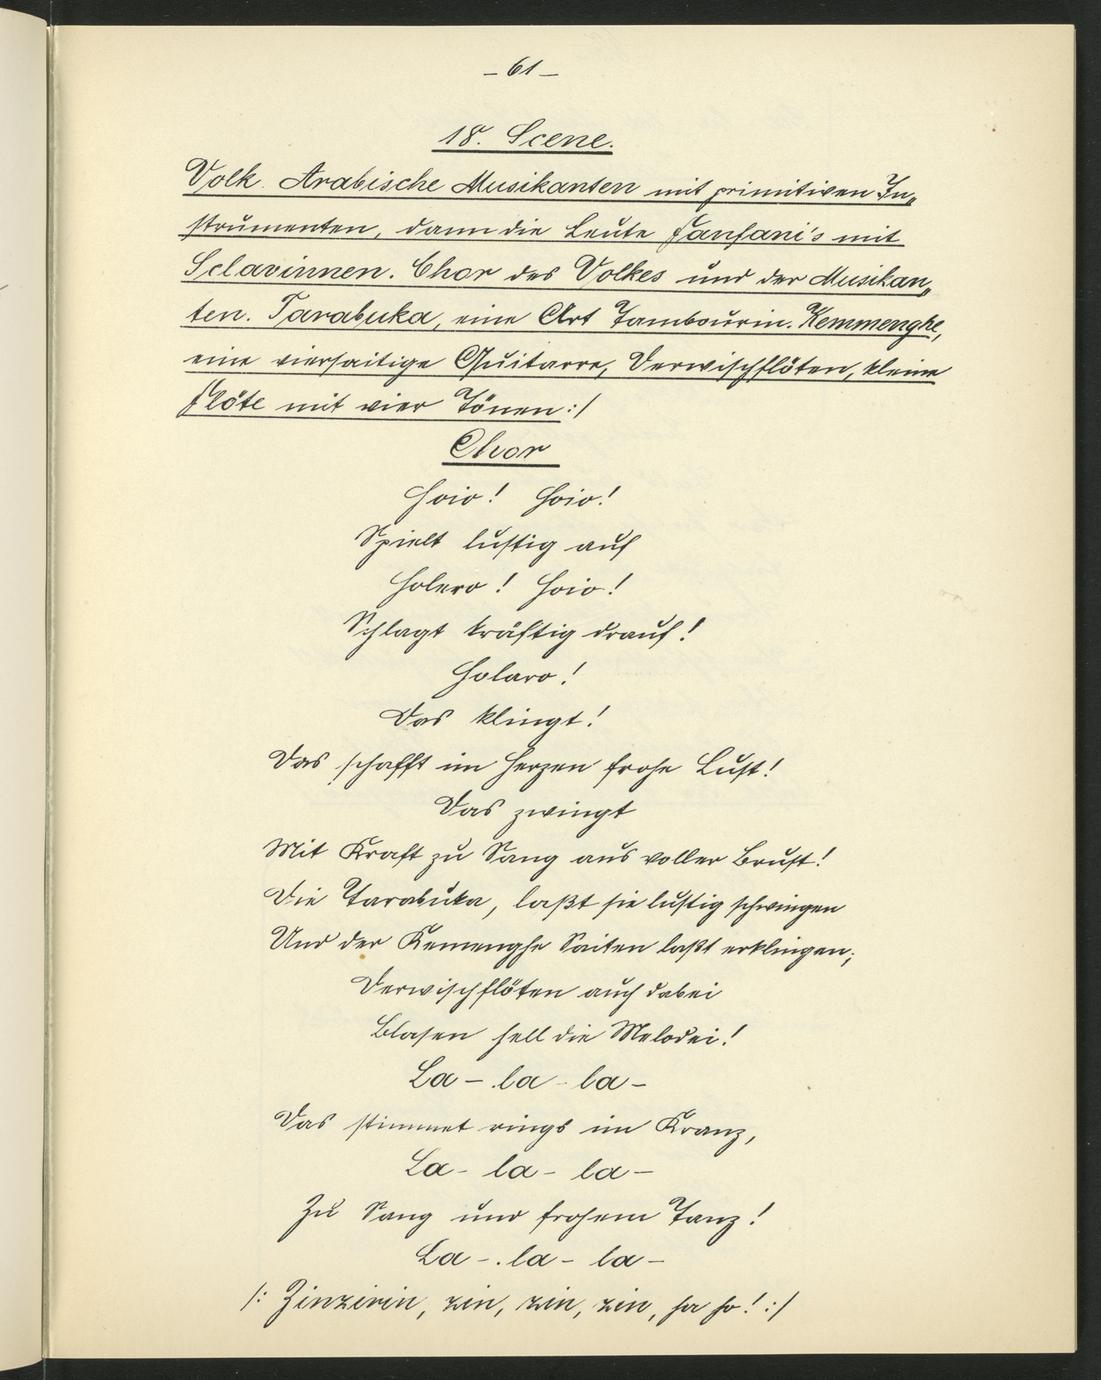 – 61 –
18. Scene.
Volk. Arabische Musikanten mit primitiven In„
strumenten, dann die Leute Fanfani's mit
Sclavinnen. Chor des Volkes und der Musikan„
ten. Tarabuka, eine Art Tambourin. Kemmenghe,
eine viersaitige Guitarre, Derwischflöten, kleine
Flöte mit vier Tönen :/
Chor
Hoio! Hoio!
Spielt lustig auf
Holero! Hoio!
Schlagt kräftig drauf!
Holaro!
Das klingt!
Das schafft im Herzen frohe Lust!
Das zwingt
Mit Kraft zu Sang aus voller Brust!
Die Tarabuka, laßt sie lustig schwingen
Und der Kemenghe Saiten laßt erklingen;
Derwischflöten auch dabei
Blasen hell die Melodei!
La – la – la –
Das stimmet rings im Kranz,
La – la – la –
Zu Sang und frohem Tanz!
La – la – la –
/: Zinzirin, zin, zin, zin, ha ho! :/